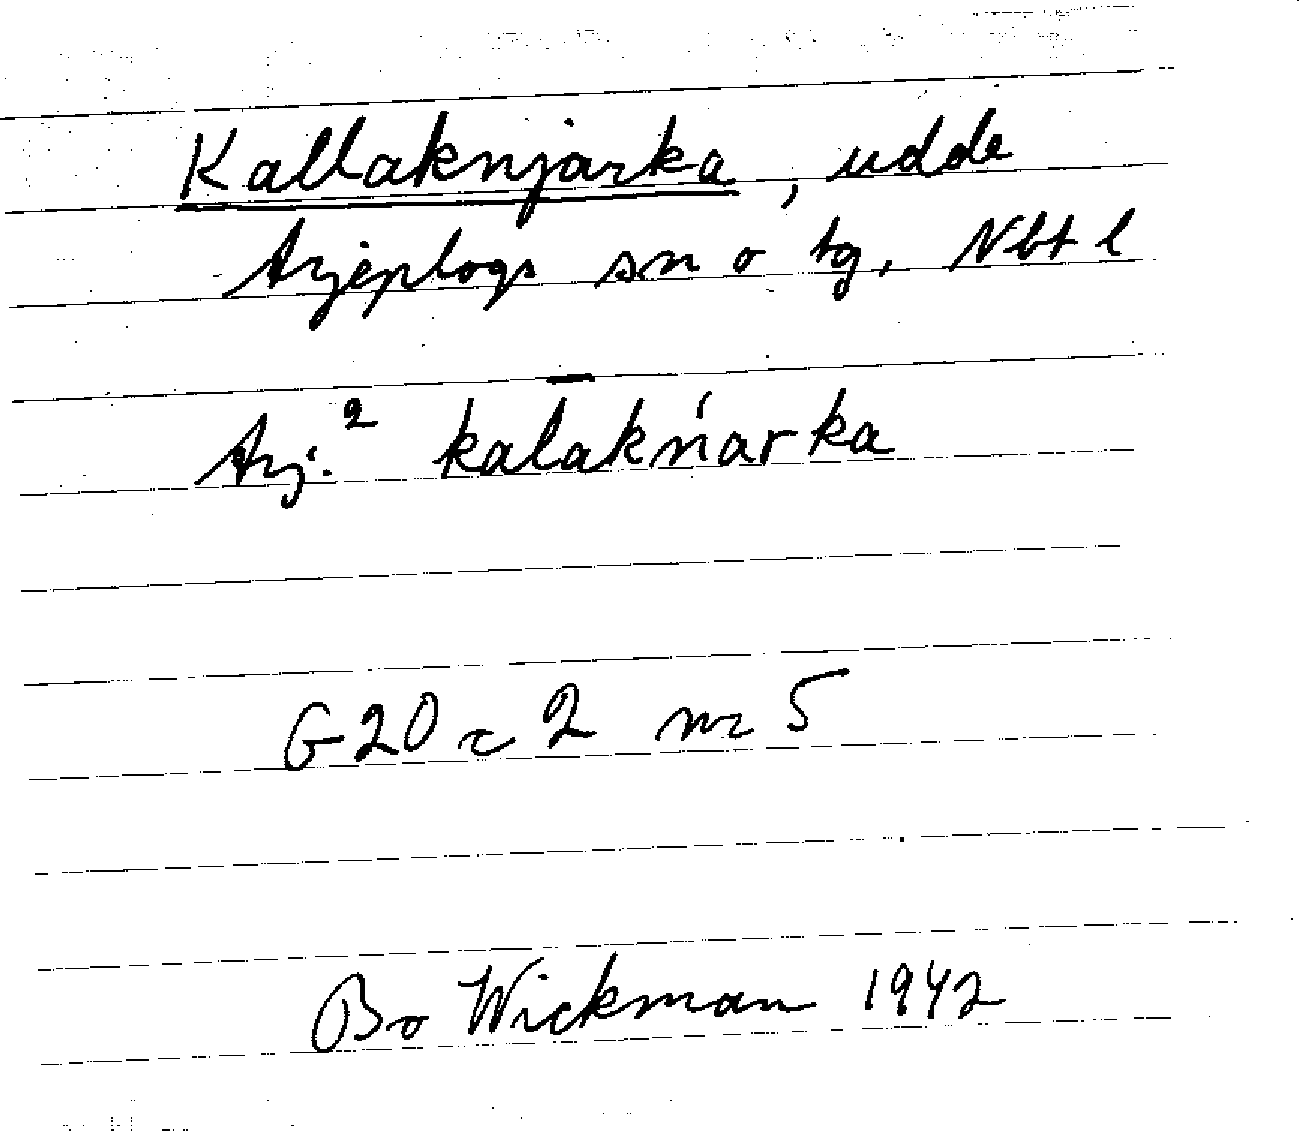 Kallaknjarka, udde
Arjeplogs sn o tg, Nbt l
Arj.² kal̄akńarka
G20 r 2 nr 5
Bo Wickman 1942